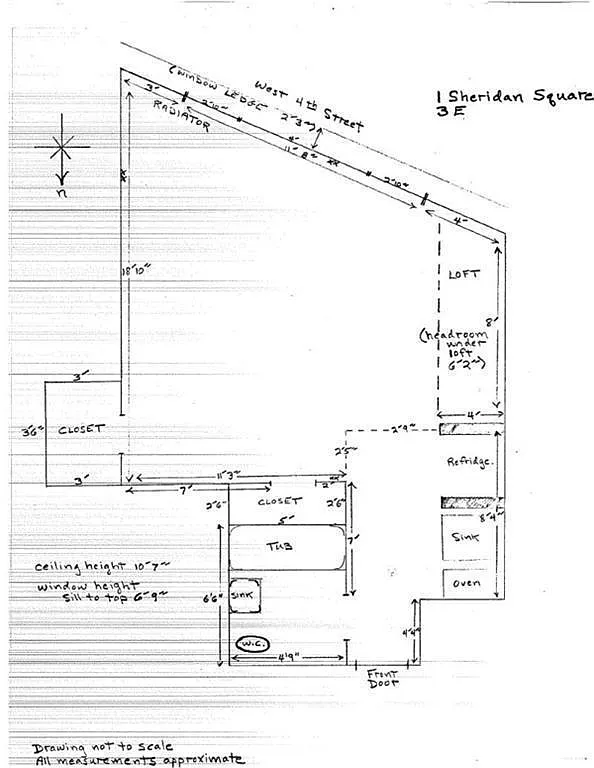 West 4th Street
(WINDOW LEDGE 2'3")
1 Sheridan Square
3E
3'
RADIATOR
2'10"
4'
11'8"
2'10"
4'
n
18'10"
LOFT
8'
(headroom
under
loft
6'2")
4'
3'
3'6"
CLOSET
3'
2'9"
2'5"
Refridge.
11'3"
7'
2"
2'6"
CLOSET
2'6"
8'4"
5'
7'
TUB
Sink
Oven
ceiling height 10'7"
window height
sill to top 6'9"
6'6"
SINK
W.C.
4'9"
4'4"
Front
Door
Drawing not to scale
All measurements approximate